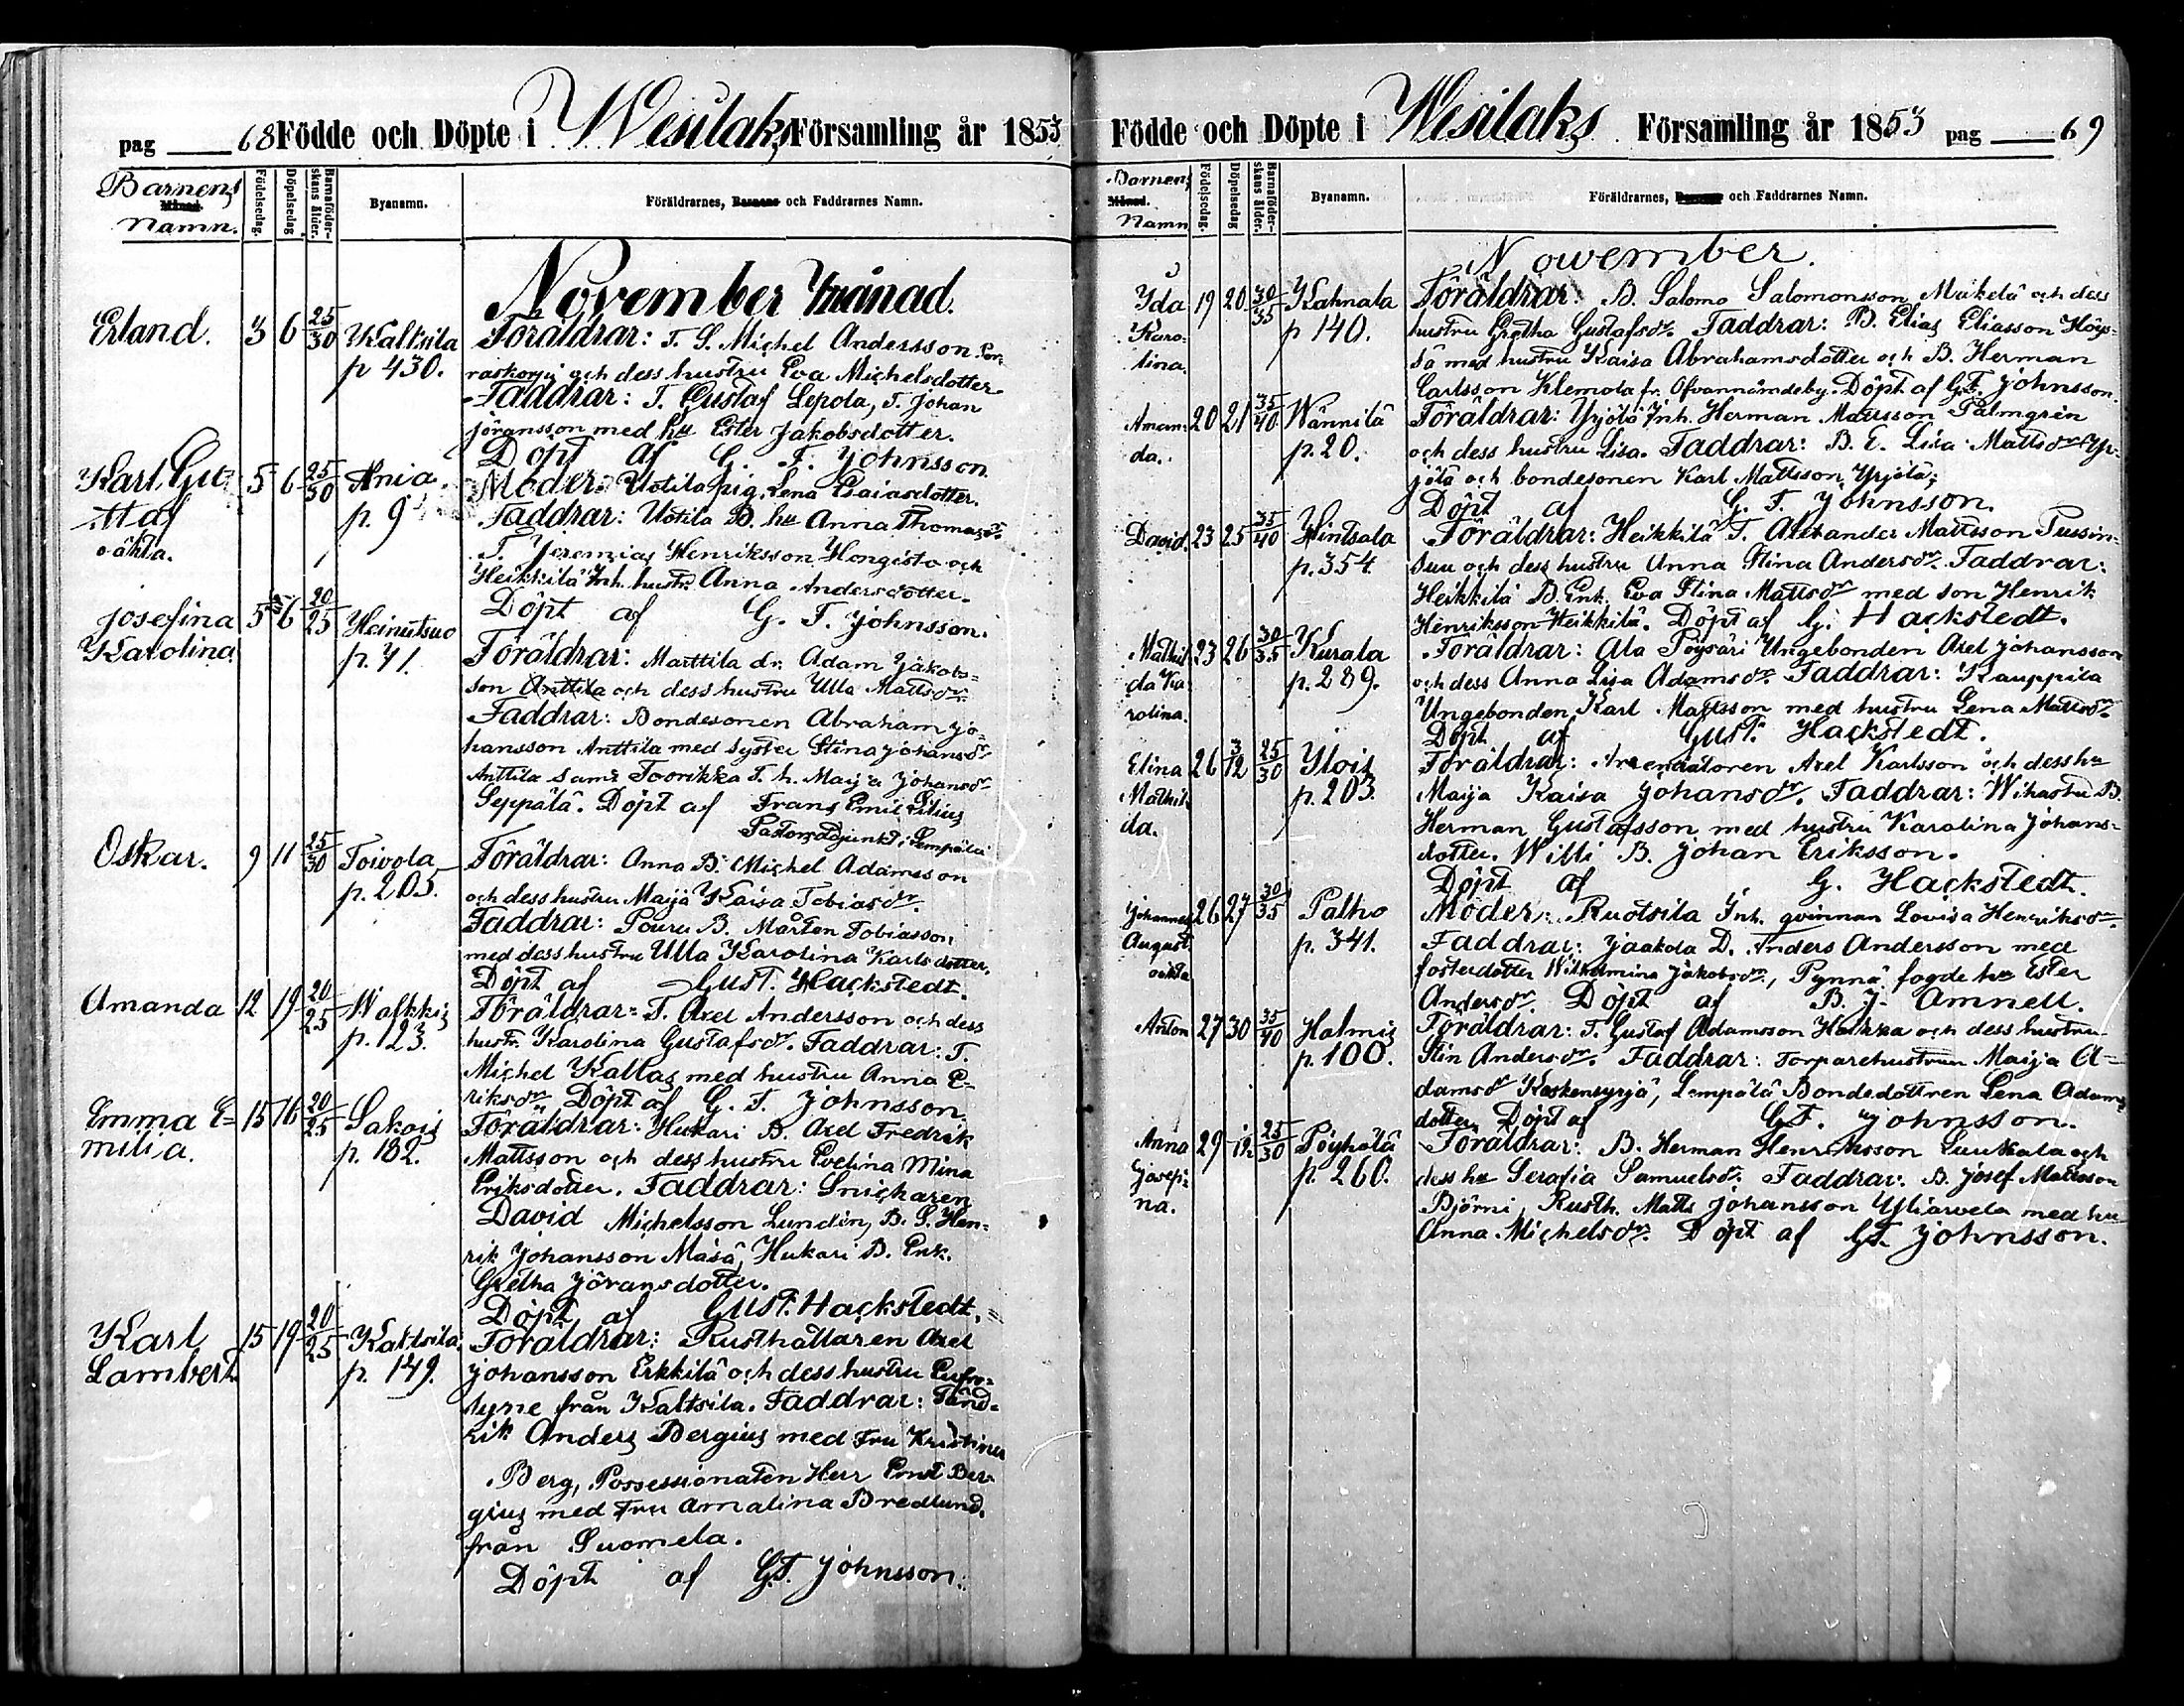 pag 68 Födde och Döpte i Wesilaks Församling år 1853
Barnens Namn.
Födelsedag.
Döpelsedag
Barnaföderskans ålder.
Byanamn.
Föräldrarnes, Barnens och Faddrarnes Namn.
November Månad.
Erland. 3 6 25/30 Kaltsila p 430.
Föräldrar: T. S. Michel Andersson Por-
raskorpi och dess hustru Eva Michelsdotter
Faddrar: T. Gustaf Lepola, T. Johan
Jöransson med hu Ester Jakobsdotter.
Döpt af G. F. Johnsson
Karl Gustaf oäkta. 5 6 25/30 Ania. p. 9
Moder: Uotila pig. Lena Esaiasdotter.
Faddrar: Uotila B. hu Anna Thomasdr
T. Jeremias Henriksson Hongisto och
Heikkilä Inh. hustr. Anna Andersdotter.
Döpt af G. F. Johnsson.
Josefina Karolina. 5 6 20/25 Heinutsuo p. 71.
Föräldrar: Marttila dr. Adam Jakobs=
son Anttila och dess hustru Ulla Mattsdr.
Faddrar: Bondesonen Abraham Jo=
hansson Anttila med syster Stina Johansdr
Anttila samt Toorikka T. h. Maija Johansdr
Seppälä. Döpt af Frans Emil Lilius
Pastorsadjunkt i Lempälä
Oskar. 9 11 25/30 Toivola p. 205.
Föräldrar: Anna B. Michel Adamsson
och dess hustru Maija Kaisa Tobiasdr.
Faddrar: Pouru B. Mårten Tobiasson
med dess hustru Ulla Karolina Karlsdotter.
Döpt af Gust. Hackstedt.
Amanda 12 19 20/25 Walkkis p. 123.
Föräldrar: T. Axel Andersson och dess
hustr. Karolina Gustafsdr. Faddrar: T.
Michel Kallas med hustru Anna E-
riksdr Döpt af G. F. Johnsson.
Emma E=milia. 15 16 20/25 Sakois p. 182.
Föräldrar: Hukari B. Axel Fredrik
Mattsson och dess hustru Evelina Mina
Eriksdotter. Faddrar: Snickaren
David Michelsson Lundin, B. S. Hen-
rik Johansson Mäsä, Hukari B. Enk.
Gretha Jöransdotter.
Döpt af Gust. Hackstedt.
Karl Lambert 15 19 20/25 Kaltsila p. 149.
Föräldrar: Rusthållaren Axel
Johansson Erkkilä och dess hustru Eufro-
syne från Kaltsila. Faddrar: Fänd-
rik Anders Bergius med Fru Kristina
Berg, Possessionaten Herr Ernst Ber-
gius med Fru Amalina Bredlund.
från Suomela.
Döpt af G.F. Johnsson.
Födde och Döpte i Wesilaks Församling år 1853 pag 69
Barnens Namn
Födelsedag.
Döpelsedag
Barnaföderskans ålder.
Byanamn.
Föräldrarnes, och Faddrarnes Namn.
Nowember.
Yda Karolina. 19 20 30/35 Kahnala p 140.
Föräldrar: B. Salomo Salomonsson Mäkelä och dess
hustru Gretha Gustafsdr. Faddrar: B. Elias Eliasson Höys-
sä med hustru Kaisa Abrahamsdotter och B. Herman
Carlsson Klemola fr. Ofvannämdeby. Döpt af G.F. Johnsson.
Amanda. 20 21 35/40 Wännilä p. 20.
Föräldrar: Yrjölä Inh. Herman Mattsson Palmgrén
och dess hustru Lisa. Faddrar: B. E. Lisa Mattsdr Yr-
jölä och bondesonen Karl Mattsson Yrjölä;
Döpt af G. F. Johnsson.
David. 23 25 35/40 Hintsala p. 354
Föräldrar: Heikkilä T. Alexander Mattsson Pussin-
suu och dess hustru Anna Stina Andersdr. Faddrar:
Heikkilä B. Enk. Eva Stina Mattsdr med son Henrik
Henriksson Heikkilä. Döpt af G. Hackstedt.
Mathilda Karolina. 23 26 30/35 Kurala p. 289.
Föräldrar: Ala Pöysäri Ungebonden Axel Johansson
och dess Anna Lisa Adamsdr. Faddrar: Kauppila
Ungebonden Karl Mattsson med hustru Lena Mattsdr.
Döpt af Gust. Hackstedt.
Elina Mathilda. 26 3/12 25/30 Ylois p. 203.
Föräldrar: Arendatoren Axel Karlsson och dess hu
Maija Kaisa Johansdr. Faddrar: Wihastu B.
Herman Gustafsson med hustru Karolina Johans-
dotter. Willi B. Johan Eriksson.
Döpt af G. Hackstedt.
Johannes August oäkta 26 27 30/35 Palho p. 341.
Moder: Ruotsila Inh. qvinnan Lovisa Henriksdr.
Faddrar: Jaakola D. Anders Andersson med
fosterdotter Wilhelmina Jakobsdr., Pynnä fogde hu Ester
Andersdr. Döpt af B. J. Amnell.
Anton 27 30 35/40 Halmis p. 100.
Föräldrar: T. Gustaf Adamsson Hakka och dess hustru
Stin Andersdr. Faddrar: Torparehustrun Maija A-
damsdr Koskensyrjä, Lempälä Bondedottren Lena Adams
dotter. Döpt af G.F. Johnsson.
Anna Josefina. 29 1/12 25/30 Pöyhölä p. 260.
Föräldrar: B. Herman Henriksson Luukala och
dess hu Serafia Samuelsdr. Faddrar: B. Josef Mattsson
Björni, Rusth. Matts Johansson Yliarvela med hu
Anna Michelsdr. Döpt af G.F. Johnsson.